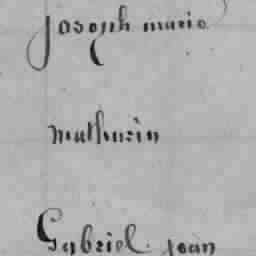 joseph marie
mathurin
Gabriel. jean